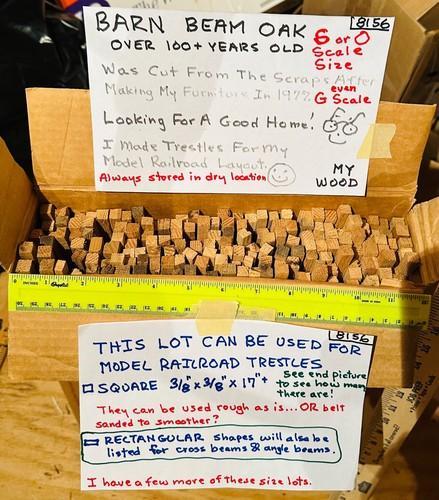 8156
BARN BEAM OAK
OVER 100+ YEARS OLD
S or O
Scale
Size
even
G Scale
Was Cut From The Scraps After
Making My Furniture In 1977.
Looking For A Good Home!
I Made Trestles For My
Model Railroad Layout.
Always stored in dry location
MY
WOOD
8156
THIS LOT CAN BE USED FOR
MODEL RAILROAD TRESTLES
SQUARE 3/8" x 3/8" x 17"+
See end picture
to see how many
there are!
They can be used rough as is...OR belt
sanded to smoother?
RECTANGULAR shapes will also be
listed for cross beams & angle beams.
I have a few more of these size lots.